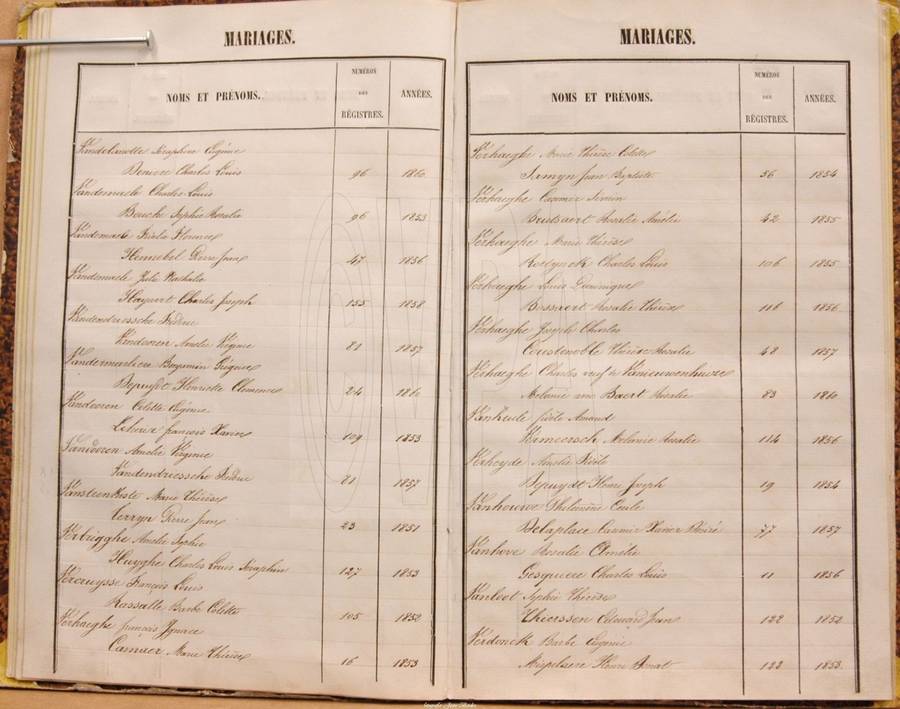 MARIAGES.
NOMS ET PRÉNOMS.
NUMÉROS
DES
RÉGISTRES.
ANNÉES.
Vandelanotte Séraphine Eugénie
Charles Louis 96 1860
Vandemaele Charles Louis
Bouche Sophie Rosalie 96 1853
Vandemaele Florence
Pierre Jean 47 1856
Vandemaele Julie Nathalie
Hayaert Charles Joseph 155 1858
Vandendriessche Isidore
Vandooren Amélie Virginie 81 1857
Vandermarlière Benjamin
Depuydt Henriette Clémence 24 1860
Vandooren Colette Eugénie
François Xavier 109 1853
Vandooren Amélie Virginie
Vandendriessche Isidore 81 1857
Vansteenkiste Marie Thérèse
Terryn Pierre Jean 23 1851
Verbrugghe Amélie Sophie
Huyghe Charles Louis Séraphin 127 1853
Vercruysse François Louis
Rassalle Barbe Colette 105 1852
Verhaeghe François Ignace
Camaer Marie Thérèse 16 1853
MARIAGES.
NOMS ET PRÉNOMS.
NUMÉROS
DES
RÉGISTRES.
ANNÉES.
Verhaeghe Marie Thérèse Colette
Jean Baptiste 56 1854
Verhaeghe Casimir
Brutsaert Rosalie Amélie 42 1855
Verhaeghe Marie Thérèse
Roelynck Charles Louis 106 1855
Verhaeghe Louis Dominique
Bossaert Rosalie Thérèse 116 1856
Verhaeghe Joseph Charles
Coustenoble Thérèse Rosalie 48 1857
Verhaeghe Charles veuf de Vanieuwenhuyse
Mélanie Baert Rosalie 83 1860
Vanheule Amand
Kimeersch Mélanie Rosalie 114 1856
Verheyde Amélie
Depuydt Henri Joseph 19 1854
Vanhouwe Philomène Cécile
Delaplace Casimir Xavier Désiré 77 1857
Vanhove Rosalie
Gesquière Charles Louis 11 1856
Sophie Thérèse
Thierssen Edouard Jean 122 1852
Verdonck Barbe Eugénie
Mispelaere Henri Donat 122 1853